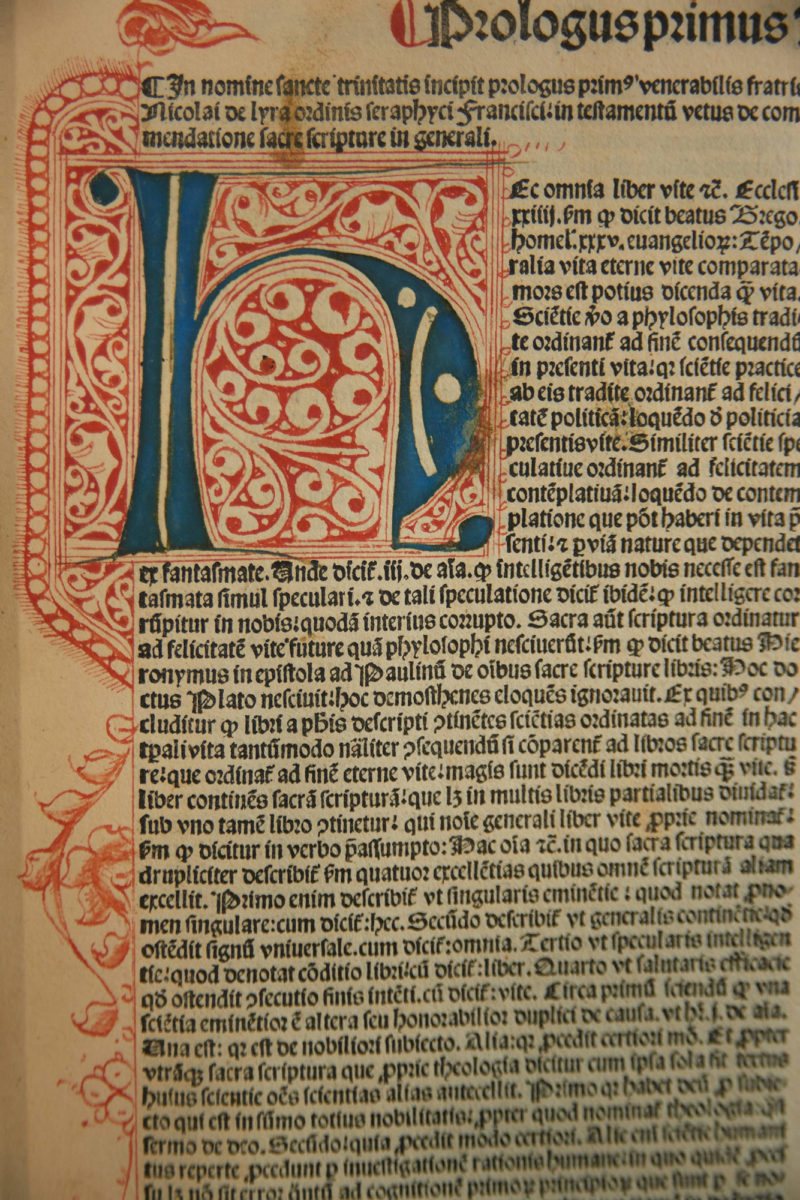 Prologus primus
¶ In nomine sancte trinitatis incipit prologus primꝰ venerabilis fratris
Nicolai de lyra ordinis seraphyci Francisci: in testamentū vetus de com
mendatione sacre scripture in generali.
Ec omnia liber vite ⁊c̄. Eccſi
xxiiij. ẜm ꝙ dicit beatus Grego
homel. xxxv. euangelioꝝ: Tēpo/
ralia vita eterne vite comparata
mors est potius dicenda ꝙ̄ vita.
Sciētie v̊o a phylosophis tradi
te ordinant̄ ad finē consequendū
in presenti vita: qꝛ sciētie practice
ab eis tradite ordinant̄ ad felici/
tatē politicā: loquēdo d̓ politicia
presentis vite. Similiter sciētie spe
culatiue ordinant̄ ad felicitatem
contēplatiuā: loquēdo de contem
platione que pōt haberi in vita p̄
senti: ⁊ ꝑ viā nature que dependet
ex fantasmate. Unde dicit̄. iij. de aīa. ꝙ intelligētibus nobis necesse est fan
tasmata simul speculari. ⁊ de tali speculatione dicit̄ ibidē: ꝙ intelligere cor
rūpitur in nobis: quodā interius corrupto. Sacra aūt scriptura ordinatur
ad felicitatē vite future quā phylosophi nesciuerūt: ẜm ꝙ dicit beatus Hie
ronymus in epistola ad Paulinū de oībus sacre scripture libris: Hoc do
ctus Plato nesciuit: hoc demosthenes eloquēs ignorauit. Ex quibꝰ con/
cluditur ꝙ libri a ph̄is descripti ꝯtinētes sciētias ordinatas ad finē in hac
tpali vita tantūmodo nāliter ꝯsequendū si cōparent̄ ad libros sacre scriptu
re: que ordinat̄ ad finē eterne vite: magis sunt dicēdi libri mortis ꝙ̄ vite. S̄
liber continēs sacrā scripturā: que lꝫ in multis libris partialibus diuidat̄:
sub vno tamē libro ꝯtinetur: qui noīe generali liber vite ꝓprie nominat̄:
ẜm ꝙ dicitur in verbo p̄assumpto: Hac oīa ⁊c̄. in quo sacra scriptura qua
drupliciter describit̄ ẜm quatuor excellētias quibus omnē scripturā aliam
excellit. Primo enim describit̄ vt singularis eminētie: quod notat ꝓno
men singulare: cum dicit̄: hec. Secūdo describit̄ vt generalis continētie: qđ
ostēdit signū vniuersale. cum dicit̄: omnia. Tertio vt specularis intelligen
tie: quod denotat cōditio libri: cū dicit̄: liber. Quarto vt salutaris efficacie
qđ ostendit ꝯsecutio finis intēti. cū dicit̄: vite. Circa primū sciendū ꝙ vna
sciētia eminētior ē altera seu honorabilior duplici de causa. vt hr̄. j. de aīa.
Una est: qꝛ est de nobiliori subiecto. Alia: qꝛ ꝓcedit certiori mō. Et ꝓpter
vtrāqꝫ sacra scriptura que ꝓprie theologia dicitur cum ipsa sola sit
huius scientie oēs scientias alias antecellit. Primo qꝛ habet deū ꝓ subie
cto qui est in sūmo totius nobilitatis: ꝓpter quod nominat̄ theologia
sermo de deo. Secūdo: quia ꝓcedit modo certiori.
tus reperte, ꝓcedunt ꝑ inuestigationē rationis humane: in quo